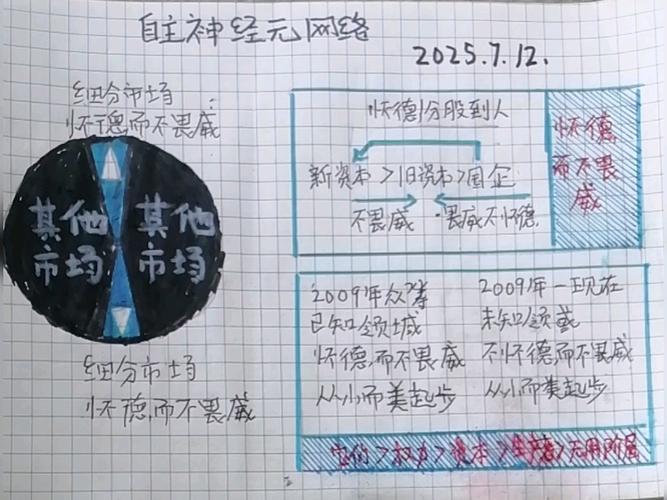 自主神经元网络
2025.7.12.
细分市场:
怀德而不畏威
其他 其他
市场 市场
细分市场
怀德,而不畏威
怀德分股到人
新资本>旧资本>国企
不畏威 畏威不怀德
怀德
而不畏
威
2009年众筹
已知领域
怀德,而不畏威
从小而美起步
2009年—现在
未知领域
不怀德,而不畏威
从小而美起步
>权力>资本>